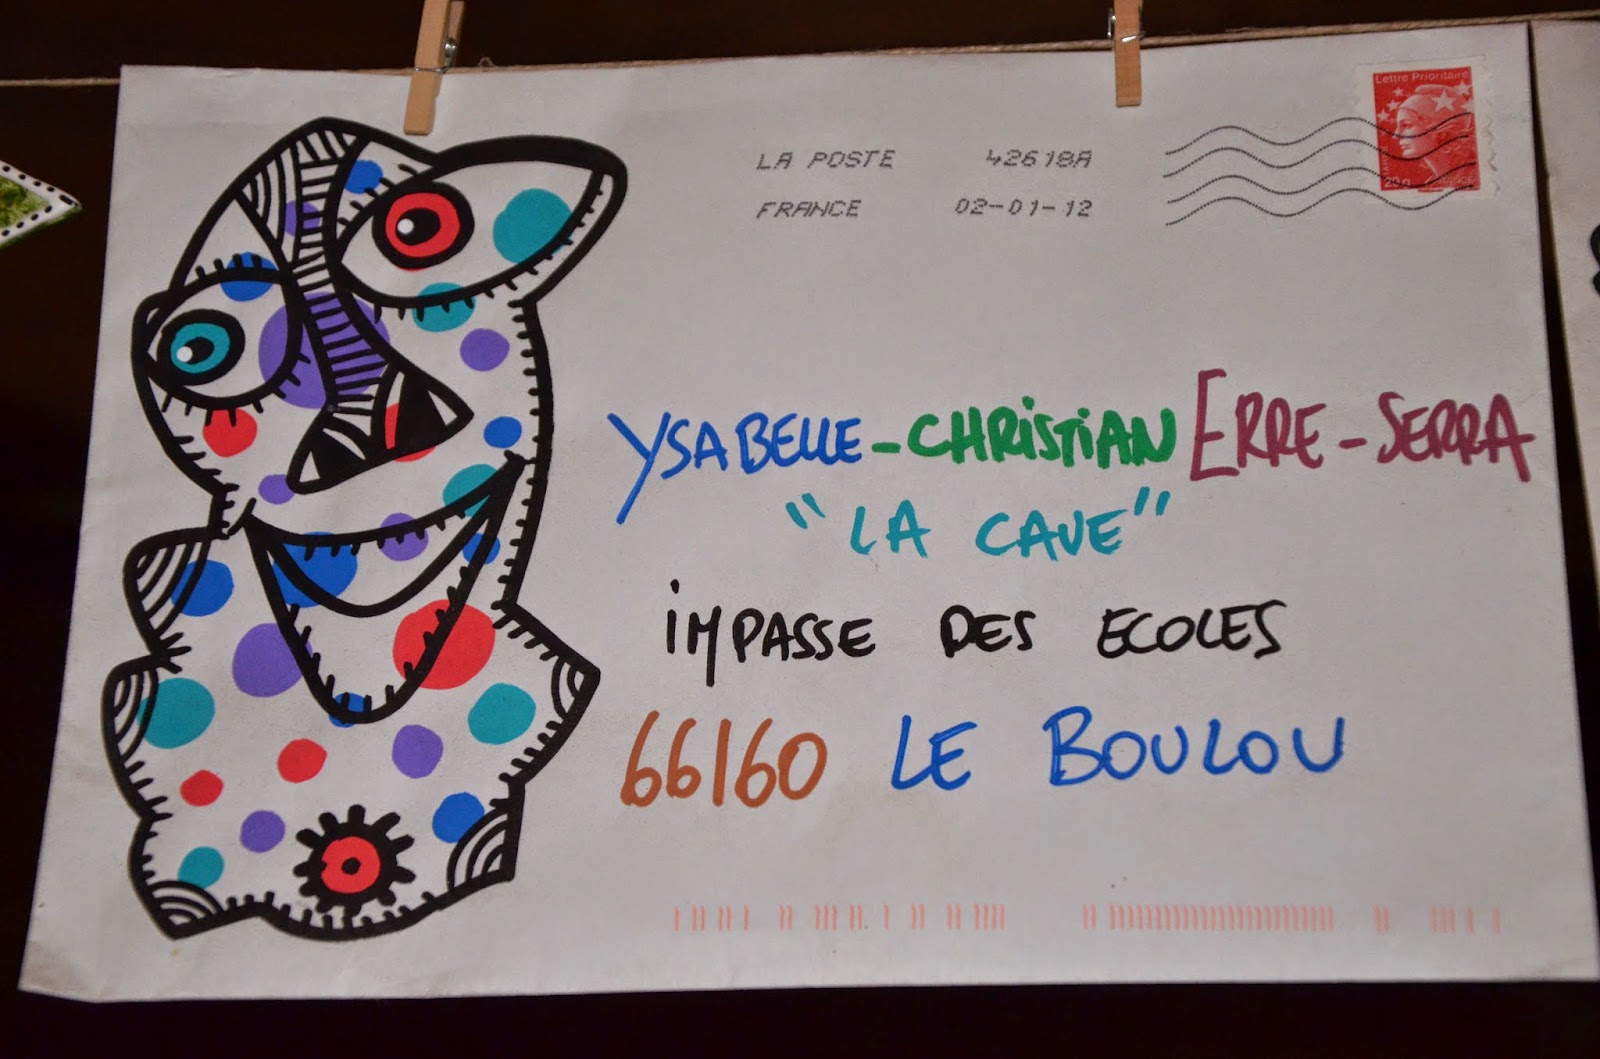 Lettre Prioritaire
LA POSTE 42618A
FRANCE 02-01-12
20g
YSABELLE-CHRiSTiAN ERRE-SERRA
"LA CAVE"
iMPASSE DES ECOLES
66160 LE BOULOU